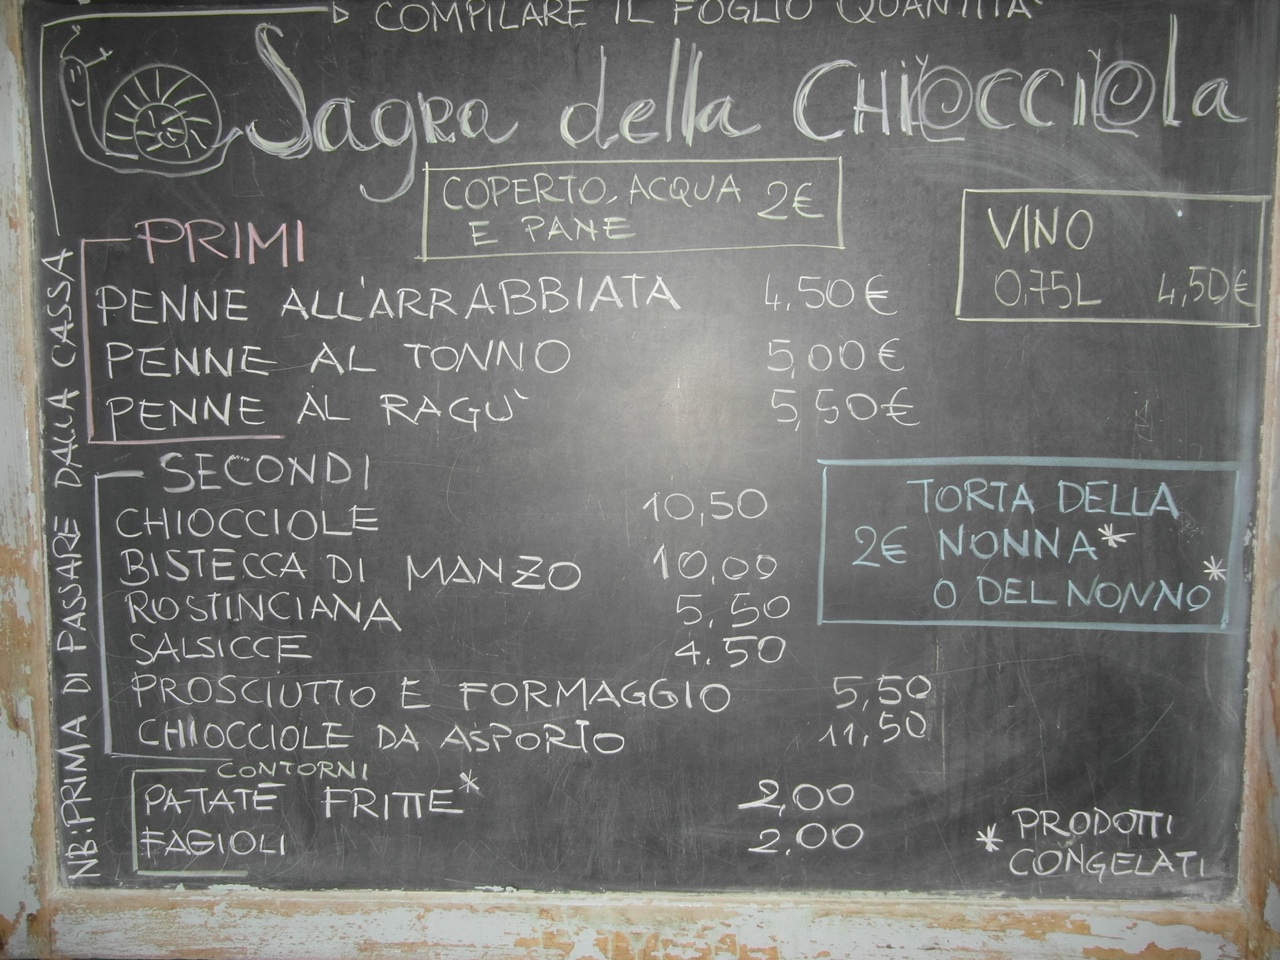 COMPILARE IL FOGLIO QUANTITA'
Sagra della CHIOCCIOla
COPERTO, ACQUA 2€
E PANE
VINO
0,75L 4,50€
PRIMI
PENNE ALL'ARRABBIATA 4,50€
PENNE AL TONNO 5,00€
PENNE AL RAGU' 5,50€
SECONDI
CHIOCCIOLE 10,50
BISTECCA DI MANZO 10,00
ROSTINCIANA 5,50
SALSICCE 4.50
PROSCIUTTO E FORMAGGIO 5,50
CHIOCCIOLE DA ASPORTO 11,50
TORTA DELLA
2€ NONNA*
O DEL NONNO*
CONTORNI
PATATE FRITTE* 2,00
FAGIOLI 2,00
* PRODOTTI
CONGELATI
NB: PRIMA DI PASSARE DALLA CASSA